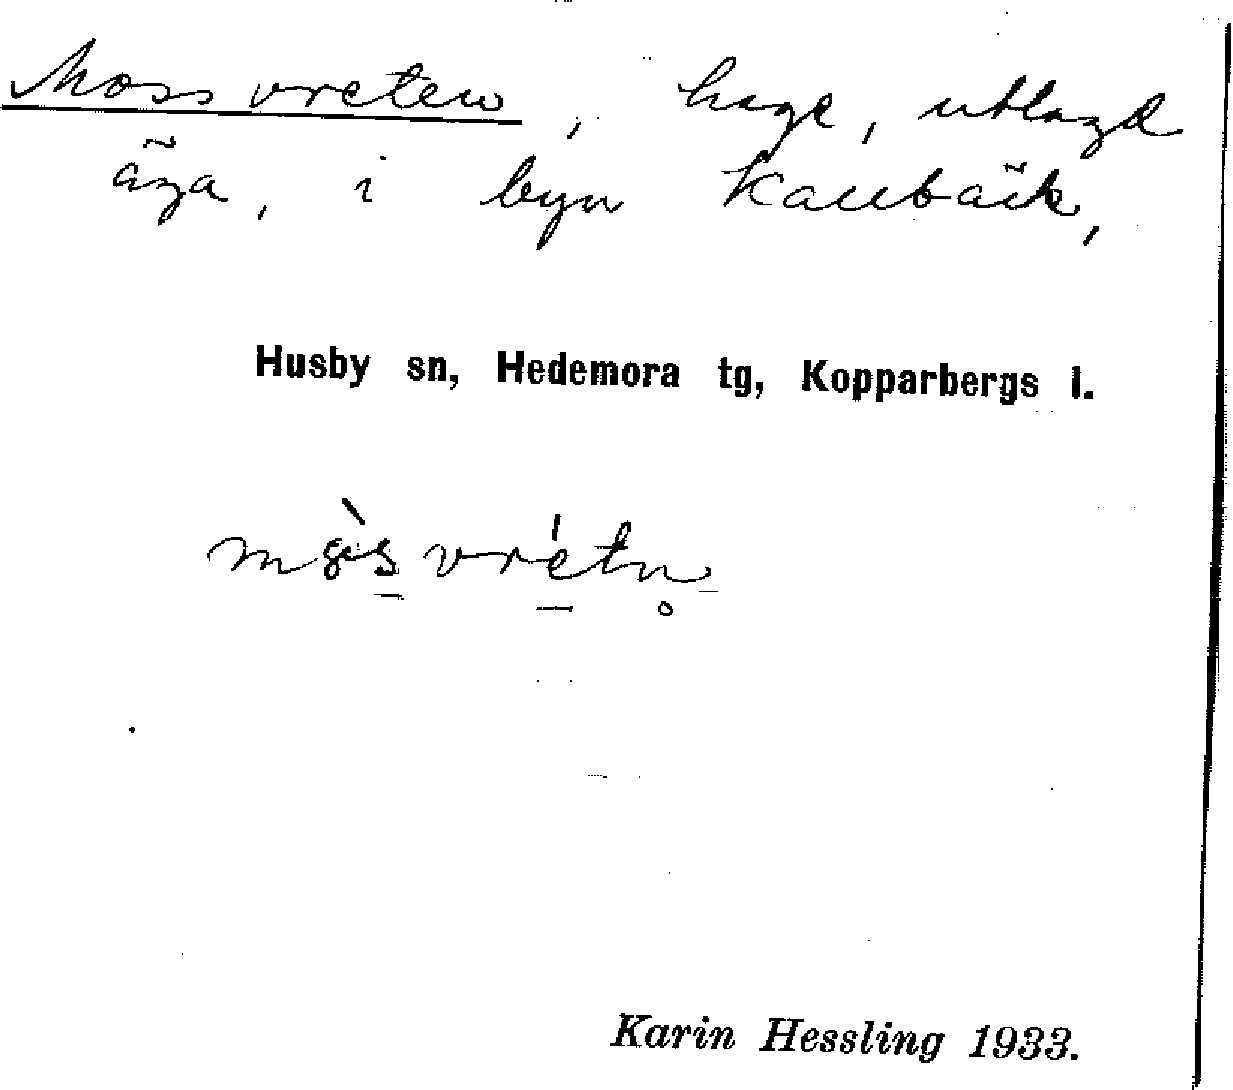 Mossvreten, hage, utlagd
äga, i byn
Husby sn, Hedemora tg, Kopparbergs l.
Karin Hessling 1933.